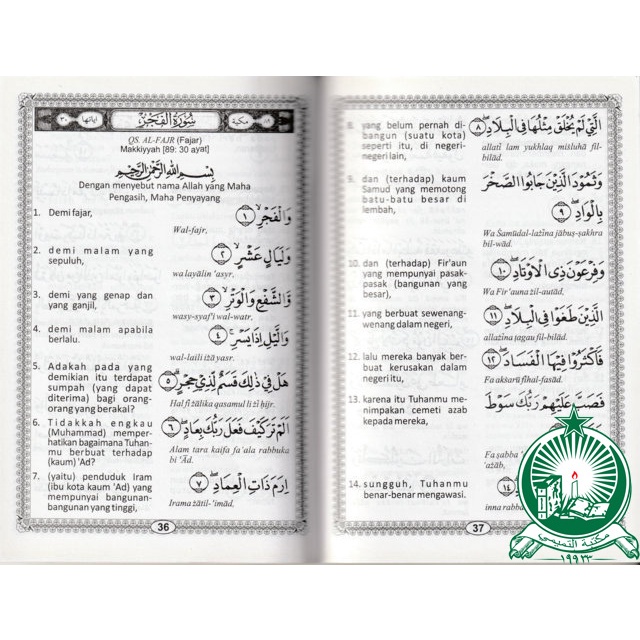 ٣٠ اياتها سُورَةُ الْفَجْرِ مكية
QS. AL-FAJR (Fajar)
Makkiyyah [89: 30 ayat]
بِسْمِ اللهِ الرَّحْمٰنِ الرَّحِيْمِ
Dengan menyebut nama Allah yang Maha
Pengasih, Maha Penyayang
1. Demi fajar,
وَالْفَجْرِۙ ﴿١﴾
Wal-fajr.
2. demi malam yang
sepuluh,
وَلَيَالٍ عَشْرٍۙ ﴿٢﴾
wa layālin 'asyr.
3. demi yang genap dan
yang ganjil,
وَّالشَّفْعِ وَالْوَتْرِۙ ﴿٣﴾
wasy-syaf'i wal-watr.
4. demi malam apabila
berlalu.
وَالَّيْلِ اِذَا يَسْرِۚ ﴿٤﴾
wal-laili iżā yasr.
5. Adakah pada yang
demikian itu terdapat
sumpah (yang dapat
diterima) bagi orang-
orang yang berakal?
هَلْ فِيْ ذٰلِكَ قَسَمٌ لِّذِيْ حِجْرٍۗ ﴿٥﴾
Hal fī żālika qasamul li żī ḥijr.
6. Tidakkah engkau
(Muhammad) memper-
hatikan bagaimana Tuhan-
mu berbuat terhadap
(kaum) 'Ad?
اَلَمْ تَرَ كَيْفَ فَعَلَ رَبُّكَ بِعَادٍۖ ﴿٦﴾
Alam tara kaifa fa'ala rabbuka
bi 'Ād.
7. (yaitu) penduduk Iram
(ibu kota kaum 'Ad) yang
mempunyai bangunan-
bangunan yang tinggi,
اِرَمَ ذَاتِ الْعِمَادِۖ ﴿٧﴾
Irama żātil-'imād.
36
8. yang belum pernah di-
bangun (suatu kota)
seperti itu, di negeri-
negeri lain,
الَّتِيْ لَمْ يُخْلَقْ مِثْلُهَا فِى الْبِلَادِۖ ﴿٨﴾
allatī lam yukhlaq misluhā fil-
bilād.
9. dan (terhadap) kaum
Samud yang memotong
batu-batu besar di
lembah,
وَثَمُوْدَ الَّذِيْنَ جَابُوا الصَّخْرَ
بِالْوَادِۖ ﴿٩﴾
Wa Samūdal-lażīna jābuṣ-ṣakhra
bil-wād.
10. dan (terhadap) Fir'aun
yang mempunyai pasak-
pasak (bangunan yang
besar),
وَفِرْعَوْنَ ذِى الْاَوْتَادِۖ ﴿١٠﴾
Wa Fir'auna żil-autād.
11. yang berbuat sewenang-
wenang dalam negeri,
الَّذِيْنَ طَغَوْا فِى الْبِلَادِۖ ﴿١١﴾
allażīna ṭagau fil-bilād.
12. lalu mereka banyak ber-
buat kerusakan dalam
negeri itu,
فَاَكْثَرُوْا فِيْهَا الْفَسَادَۖ ﴿١٢﴾
Fa akṡarū fīhal-fasād.
13. karena itu Tuhanmu me-
nimpakan cemeti azab
kepada mereka,
فَصَبَّ عَلَيْهِمْ رَبُّكَ سَوْطَ
Fa ṣabba
'ażāb,
14. sungguh, Tuhanmu
benar-benar mengawasi.
﴿١٤﴾
inna rabba
37
مكتبة التميمي
١٩٩٢٣